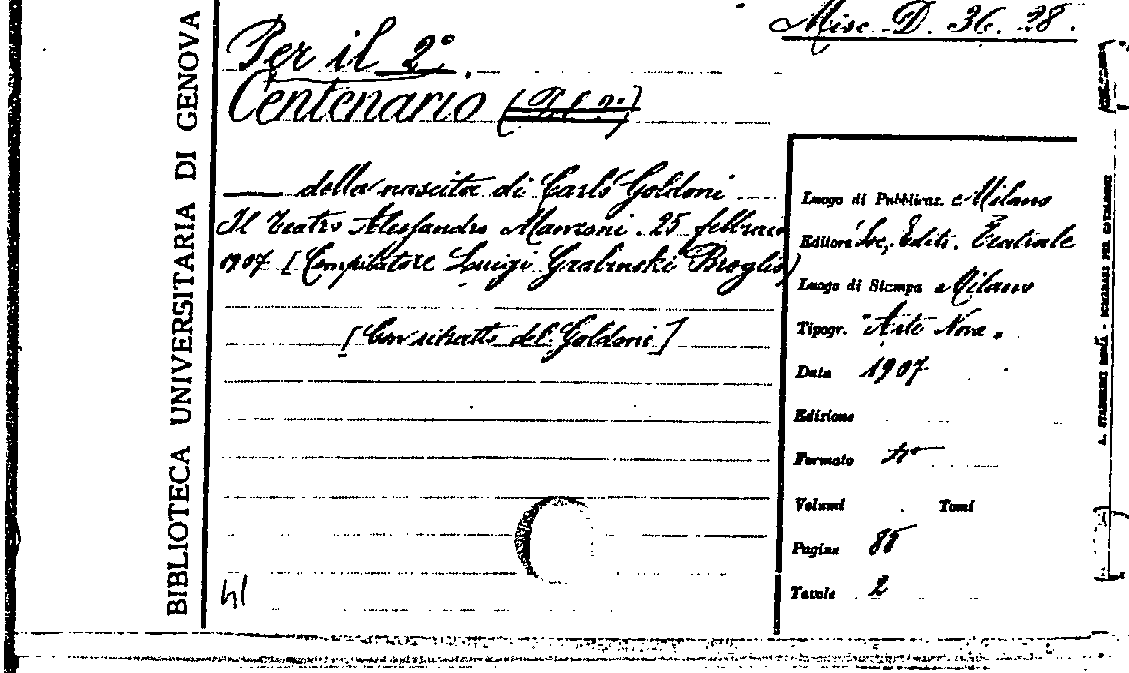 Misc. D. 36. 28.
BIBLIOTECA UNIVERSITARIA DI GENOVA
Per il 2°
Centenario
della nascita di Carlo Goldoni
Il Teatro Alessandro Manzoni. 25 febbraio
1907 [Compilatore Luigi Grabinski Broglio]
[Con ritratto del Goldoni]
Luogo di Pubblicaz. Milano
Editore Soc. Edit. Teatrale
Luogo di Stampa Milano
Tipogr. "Arte Nova"
Data 1907
Edizione
Formato
Volumi Tomi
Pagine 85
Tavole 2